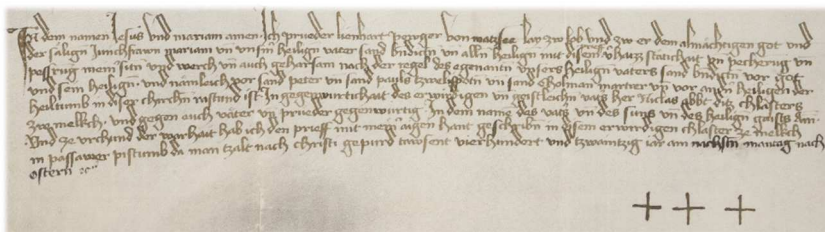 In dem namen Jesus und mariam amen Ich prueder lienhart perger von matsee lay zw lob und zw er dem almachtigen got und
der sälign Junchfrawn mariam un unsm heilign vater sand Bndictn un alln heilign mit disem stätichait pecherug un
pessrug meinr sitn und werch un auch gehorsam nach der regel des egenanen unsers heilign vaters sand bndictn vor got
und sein heilign und nämleich vor sand peter un sand pauls zwelifpotn un sand Cholman martrer un vor angn heilign der
heiltumb in diser chirchn rastund ist In gegenwurtichait des erwirdign un geistleichn vatss her Niclas abbt ditz chlosters
zw mellich und gegen auch väter un prueder gegenwurtig In dem name des vatss un des suns un des heilign geists am
Und ze urchund der warhait hab ich den prieff mit meinr aigen hant geschribn in disem erwirdigen chloster ze mellich
in passawer pistumb da man tzalt nach christi gepurd tawsent vierhundert und tzwaintzig iar am nachstn mantag nach
ostern